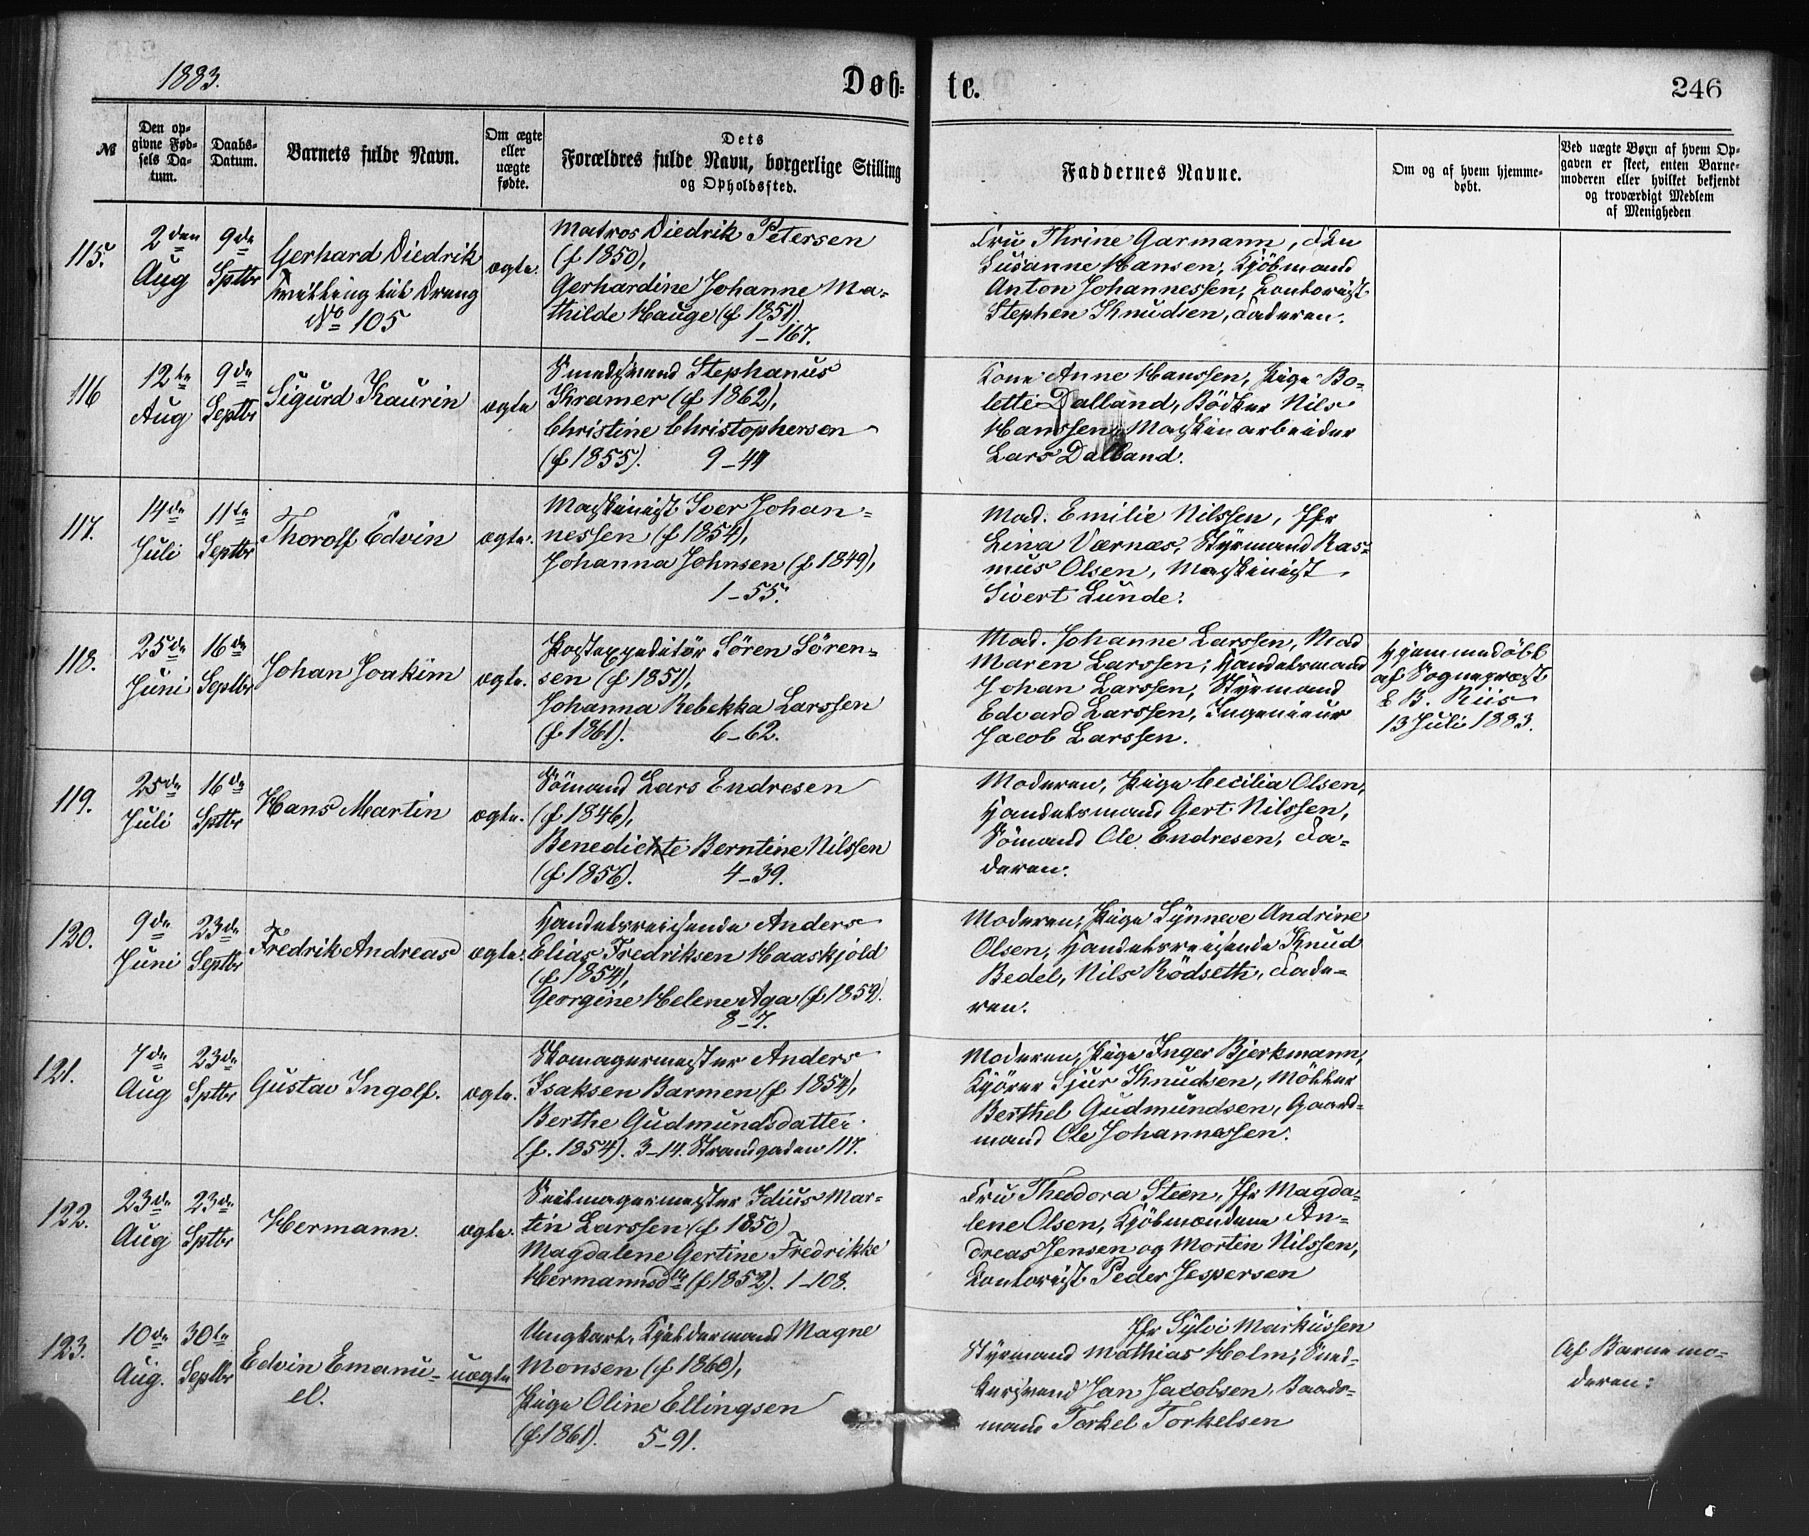 1883.
Døb-
te.
246
№
Den op-
givne Fød-
sels Da-
tum.
Daabs-
Datum.
Barnets fulde Navn.
Om ægte
eller
uægte
fødte.
Dets
Forældres fulde Navn, borgerlige Stilling
og Opholdssted.
Faddernes Navne.
Om og af hvem hjemme-
døbt.
Ved uægte Børn af hvem Op-
gaven er skeet, enten Barne-
moderen eller hvilket bekjendt
og troværdigt Medlem
af Menigheden
115.
2den
Aug
9de
Sptbr
Gerhard Diedrik
Tvilling til Dreng
No 105
ægte.
Matros Diedrik Petersen
(f 1850),
Gerhardine Johanne Ma-
thilde Hauge (f 1851).
1-167.
Fru Thrine Garmann, Frk
Susanne Hansen, Kjöbmand
Anton Johannessen, Contorist
Stephen Knudsen, Faderen.
116
12te
Aug
9de
Septbr
Sigurd Kaurin
ægte
Smedsvend Stephanus
Kramer (f 1862),
Christine Christophersen
(f 1855). 9-44
Kone Anne Hanssen, Pige Bo-
lette Dalland, Bödker Nils
Hanssen, Maskinarbeider
Lars Dalland.
117.
14de
Juli
11te
Septbr
Thorolf Edvin
ægte.
Maskinist Iver Johan-
nessen (f 1854),
Johanna Johnsen (f 1849),
1-55.
Mad. Emilie Nilssen, Jfr
Lina Værnæs, Styrmand Ras-
mus Olsen, Maskinist
Sivert Lunde.
118.
25de
Juni
16de
Septbr
Johan Joakim
ægte.
Postexpeditör Sören Sören-
sen (f 1851),
Johanna Rebekka Larssen
(f 1861). 6-62.
Mad. Johanne Larssen, Mad
Maren Larssen, Handelsmand
Johan Larssen, Styrmand
Edvard Larssen, Ingenieur
Jacob Larssen.
Hjemmedöbt
af Sognepræst
E B. Riis
13 Juli 1883.
119.
25de
Juli
16de
Sptbr
Hans Martin
ægte.
Sömand Lars Endresen
(f 1846),
Benedicte Berntine Nilssen
(f 1856). 4-39.
Moderen, Pige Cecilia Olsen,
Handelsmand Gert Nilssen,
Sömand Ole Endresen, Fa-
deren.
120.
9de
Juni
23de
Septbr
Fredrik Andreas
ægte.
Handelsreisende Anders
Elias Fredriksen Haaskjold
(f 1854),
Georgine Helene Aga (f 1859).
8-7.
Moderen, Pige Synneve Andrine
Olsen, Handelsreisende Knud
Bedel, Nils Rödseth, Fade-
ren.
121.
7de
Aug
23de
Sptbr
Gustav Ingolf.
ægte.
Skomagermester Anders
Isaksen Barmen (f 1854),
Berthe Gudmundsdatter
(f. 1854). 3-14. Strandgaden 117.
Moderen, Pige Inger Bjerkmann,
Kjörer Sjur Knudsen, Möller
Berthel Gudmundsen, Gaard-
mand Ole Johannessen.
122.
23de
Aug
23de
Sptbr
Hermann.
ægte.
Seilmagermester Idius Mar-
tin Larssen (f 1850)
Magdalene Gertine Fredrikke
Hermannsdtr (f 1852). 1-108.
Fru Theodora Steen, Jfr Magda-
lene Olsen, Kjöbmændene An-
dreas Jensen og Morten Nilssen,
Contorist Peder Jespersen
123.
10de
Aug.
30te
Septbr
Edvin Emanu-
el.
uægte
Ungkarl, Kjeldermand Magne
Monsen (f 1860),
Pige Oline Ellingsen
(f 1861). 5-91.
Jfr Sylvi Markussen
Styrmand Mathias Holm, Sned-
kersvend Jan Jacobsen, Baads-
mand Torkel Torkelsen
Af Barnemo-
deren.